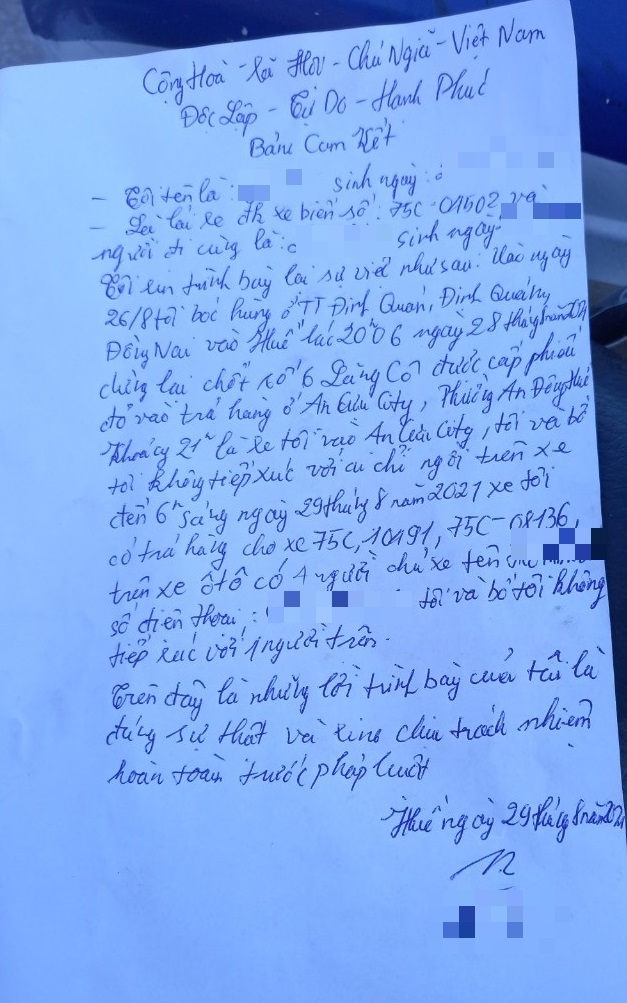 Cộng Hoà - Xã Hội - Chủ Nghiã - Việt Nam
Độc Lập - Tự Do - Hạnh Phúc
Bản Cam Kết
- Tôi tên là : sinh ngày :
- Là lái xe đk xe biển số : 75C-01502, và
người đi cùng là : sinh ngày
Tôi xin trình bày lại sự việc như sau : Vào ngày
26/8 tôi bốc hàng ở TT Định Quán, Định Quán,
Đồng Nai vào Huế lúc 20h06 ngày 28 tháng 8 năm 2021
dừng lại chốt số 6 Lăng Cô được cấp phiếu
đỏ vào trả hàng ở An Cựu City, Phường An Đông, Huế
Khoảng 21h là xe tôi vào An Cựu City, tôi và bố
tôi không tiếp xúc với ai chỉ ngồi trên xe
đến 6h sáng ngày 29 tháng 8 năm 2021 xe tôi
có trả hàng cho xe 75C, 10191, 75C-08136,
trên xe ôtô có 4 người chủ xe tên
số điện thoại : tôi và bố tôi không
tiếp xúc với người trên.
Trên đây là những lời trình bày của tôi là
đúng sự thật và xin chịu trách nhiệm
hoàn toàn trước pháp luật
Huế ngày 29 tháng 8 năm 2021